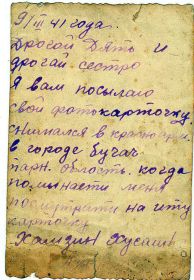 9/III 41 года.
Дрогой Дять и
дрогай сестро
Я вам посылаю
свой фотокарточку
снимался в красной арм
в городе бучач
парн. область. когда
помынаете меня
посмитрити на ету
карточку
Хамзин Хусаин